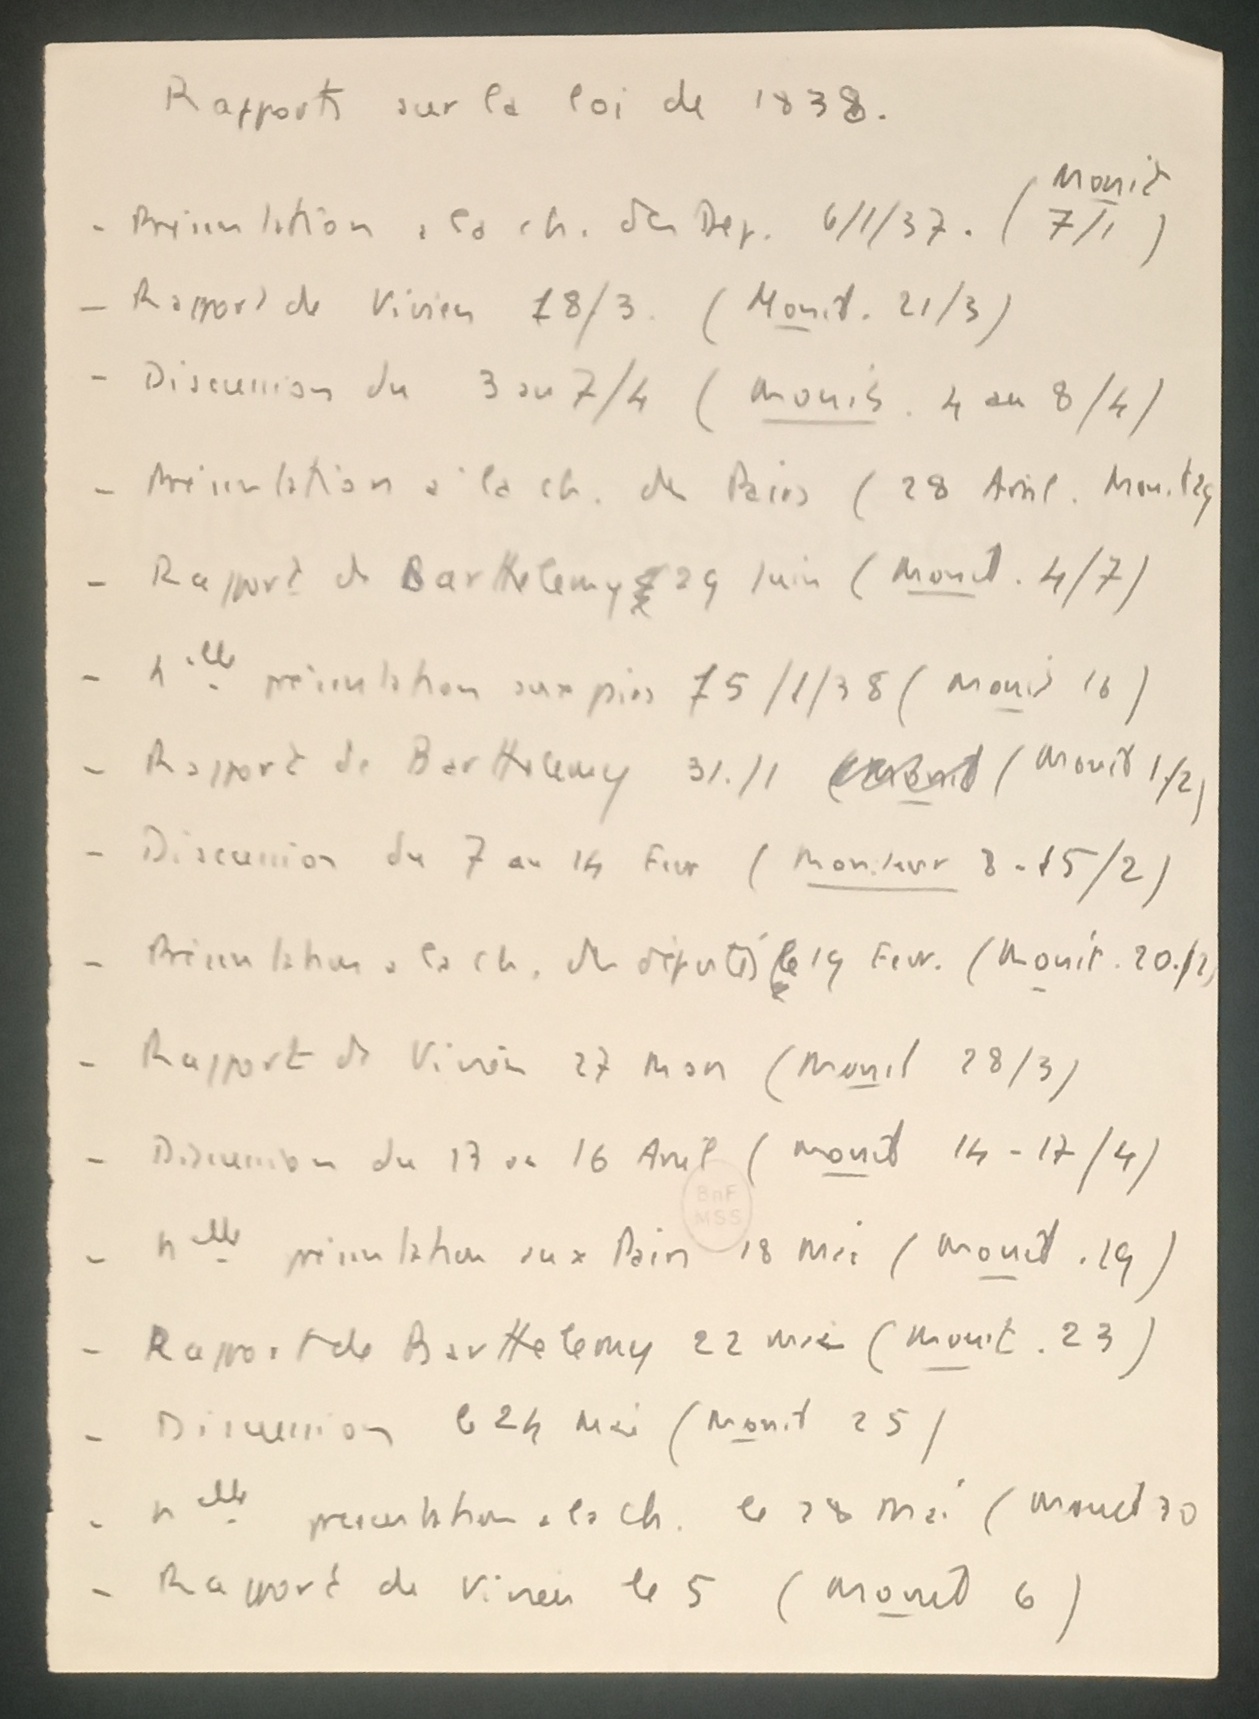 Rapports sur la loi de 1838.
- Présentation à la ch. des Dep. 6/1/37. (Monit 7/1)
- Rapport de Vivien 18/3. (Monit. 21/3)
- Discussion du 3 au 7/4 (Monit. 4 au 8/4)
- Présentation à la ch. des Pairs (28 Avril. Monit 29
- Rapport de Barthelemy 29 Juin (Monit. 4/7)
- nelle présentation aux pairs 15/1/38 (Monit 16)
- Rapport de Barthelemy 31./1 (Monit 1/2)
- Discussion du 7 au 14 Fevr (Moniteur 8-15/2)
- Présentation à la ch. des députés le 19 Fevr. (Monit. 20./2)
- Rapport de Vivien 27 Mars (Monit 28/3)
- Discussion du 13 au 16 Avril (Monit 14-17/4)
BnF
MSS
- nelle présentation aux Pairs 18 Mai (Monit. 19)
- Rapport de Barthelemy 22 mai (Monit. 23)
- Discussion le 24 Mai (Monit 25)
- nelle présentation à la Ch. le 28 Mai (Monit 30
- Rapport de Vivien le 5 (Monit 6)